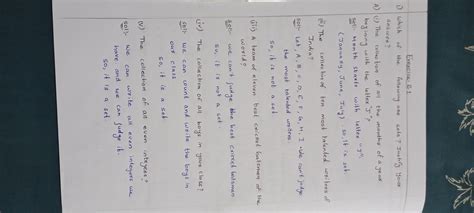 Exercise 6.1
1) Which of the following are sets? Justify your
answer?
A) (i) The collection of all the months of a year
beginning with the letter "J"?
sol:- Month starts with letter "J"
(January, June, July) so it is set
(ii) The collection of ten most talented writers of
India?
sol:- Let, A, B, C, D, E, F, G, H, I we can't judge
the most talented writers
so, it is not a set
(iii) A team of eleven best cricket batsmen of the
world?
sol:- we can't judge the best cricket batsmen
so, it is not a set
(iv) The collection of all boys in your class?
sol:- we can count and write the boys in
our class
so, it is a set
(v) The collection of all even integers?
sol:- we can write all even integers we
have and we can judge it
so, it is a set